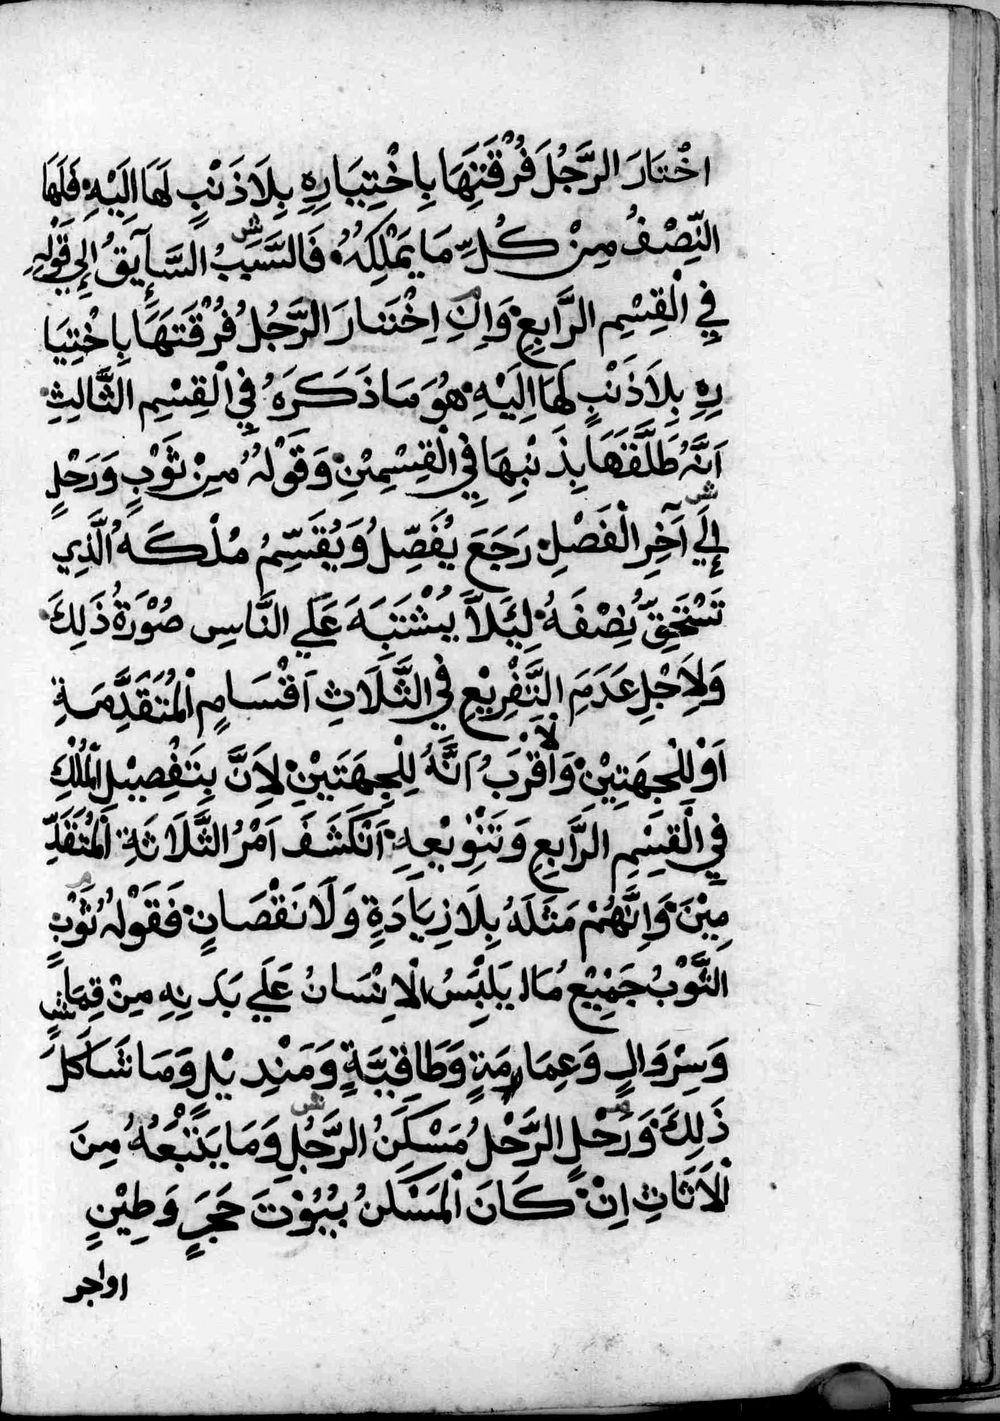 اخْتَارَ الرَّجُلَ فُرْقَتَهَا بِاخْتِيَارِهِ بِلَا ذَنْبٍ لَهَا اِلَيْهِ فَلَهَا
النِّصْفُ مِنْ كُلِّ مَا يَمْلِكُهُ فَالسَّبَبُ السَّايِقُ اِلَي قَوْلِهِ
فِي الْقِسْمِ الرَّابِعِ وَاِنِ اخْتَارَ الرَّجُلُ فُرْقَتَهَا بِاخْتِيَا
رِهِ بِلَا ذَنْبٍ لَهَا اِلَيْهِ هُوَ مَا ذَكَرَهُ فِي الْقِسْمِ الثَّالِثِ
اَنَّهُ طَلَّقَهَا بِذَنْبِهَا فِي الْقِسْمِيْنِ وَقَوْلُهُ مِنْ ثَوْبٍ وَرَحْلٍ
اِلَي آخِرِ الْفَصْلِ رَجَعَ يُفَصِّلُ وَيُقَسِّمُ مُلْكَهُ الَّذِي
تَسْتَحِقُّ نِصْفَهُ لِيَلَّا يُشْتَبَهَ عَلَي النَّاسِ صُوْرَةُ ذَلِكَ
وَلِاَجْلِ عَدَمِ التَّفْرِيْعِ فِي الثَّلَاثِ اَقْسَامٍ الْمُتَقَدَّمَةِ
اَوْ لِلْجِهَتِيْنِ وَالْاَقْرَبُ اَنَّهُ لِلْجِهَتَيْنِ لِاَنَّ بِتَفْصِيْلِ الْمُلْكِ
فِي الْقِسْمِ الرَّابِعِ وَتَنْوِيْعِهِ اَنْكَشَفَ اَمْرُ الثَّلَاثَةِ الْمُتَقَدِّ
مِيْنَ وَاِنَّهُمْ مَثَلَهُ بِلَا زِيَادَةٍ وَلَا نَقْصَانٍ فَقَوْلُهُ ثَوْبٍ
الثَّوْبُ جَمِيْعُ مَا يَلْبِسُ الْاِنْسَانُ عَلَي بَدَنِهِ مِنْ قِمَاشٍ
وَسِرْوَالٍ وَعِمَامَةٍ وَطَاقِيَّةٍ وَمَنْدِيْلٍ وَمَا شَاكَلَ
ذَلِكَ وَرَحْلٍ الرَّحْلُ مَسْكَنُ الرَّجُلِ وَمَا يَتْبَعُهُ مِنَ
الْاَثَاثِ اِنْ كَانَ الْمَسْكَنُ بُيُوْتَ حَجَرٍ وَطِيْنٍ
اواجر